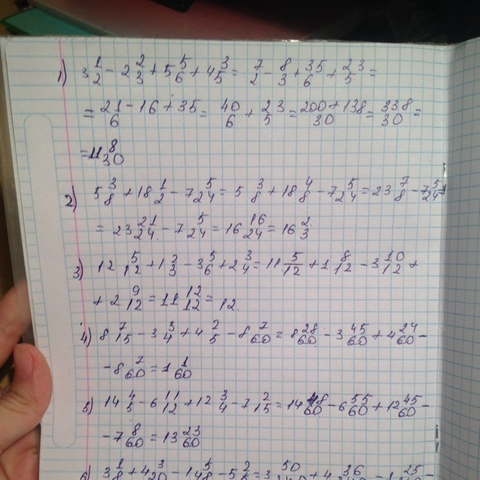 1) 3 1/2 - 2 2/3 + 5 5/6 + 4 3/5 = 7/2 - 8/3 + 35/6 + 23/5 =
= 21 - 16 + 35/6 = 40/6 + 23/5 = 200 + 138/30 = 338/30 =
= 11 8/30
2) 5 3/8 + 18 1/2 - 7 5/24 = 5 3/8 + 18 4/8 - 7 5/24 = 23 7/8 - 7 5/24 =
= 23 21/24 - 7 5/24 = 16 16/24 = 16 2/3
3) 12 5/12 + 1 2/3 - 3 5/6 + 2 3/4 = 11 5/12 + 1 8/12 - 3 10/12 +
+ 2 9/12 = 11 12/12 = 12
4) 8 7/15 - 3 3/4 + 4 2/5 - 8 7/60 = 8 28/60 - 3 45/60 + 4 24/60 -
- 8 7/60 = 1 1/60
5) 14 4/5 - 6 11/12 + 12 3/4 - 7 2/15 = 14 48/60 - 6 55/60 + 12 45/60 -
- 7 8/60 = 13 23/60
6) 3 1/8 + 4 3/20 - 1 5/48 - 5